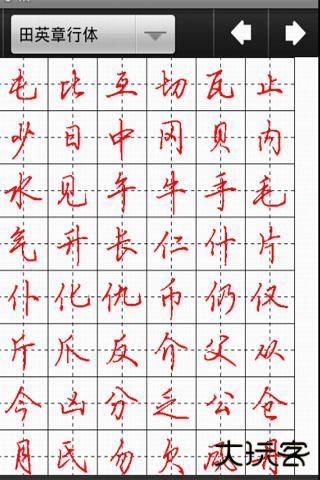 田英章行体
屯比互切瓦止
少日中冈贝内
水见午牛手毛
气升长仁什片
仆化仇币仍仅
斤爪反介父从
今凶分乏公仓
月氏勿欠风丹
大玩客